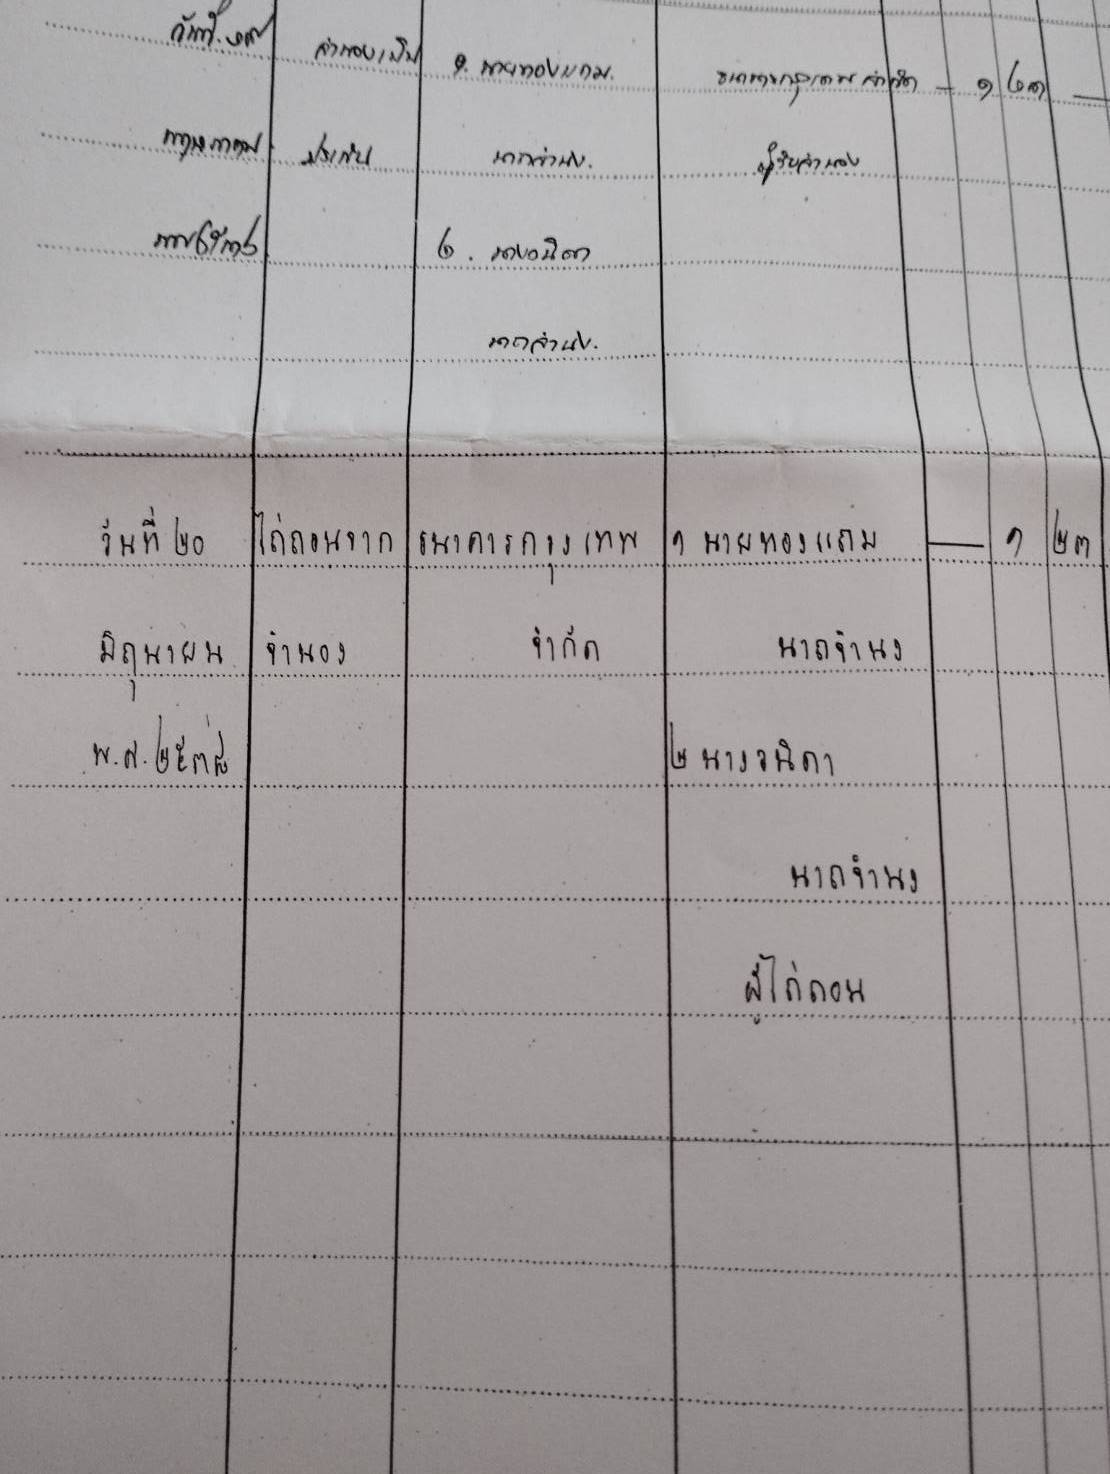 วันที่ ๑๙ จำนองเป็น ๑. นายทองแถม ธนาคารกรุงเทพ จำกัด — ๑ ๒๓ —
พฤษภาคม ประกัน นาถจำนง. ผู้รับจำนอง
๒. นางวนิดา
นาถจำนง.
วันที่ ๒๐ ไถ่ถอนจาก ธนาคารกรุงเทพ ๑ นายทองแถม — ๑ ๒๓
มิถุนายน จำนอง จำกัด นาถจำนง
พ.ศ. ๒๕๓๘ ๒ นางวนิดา
นาถจำนง
ผู้ไถ่ถอน